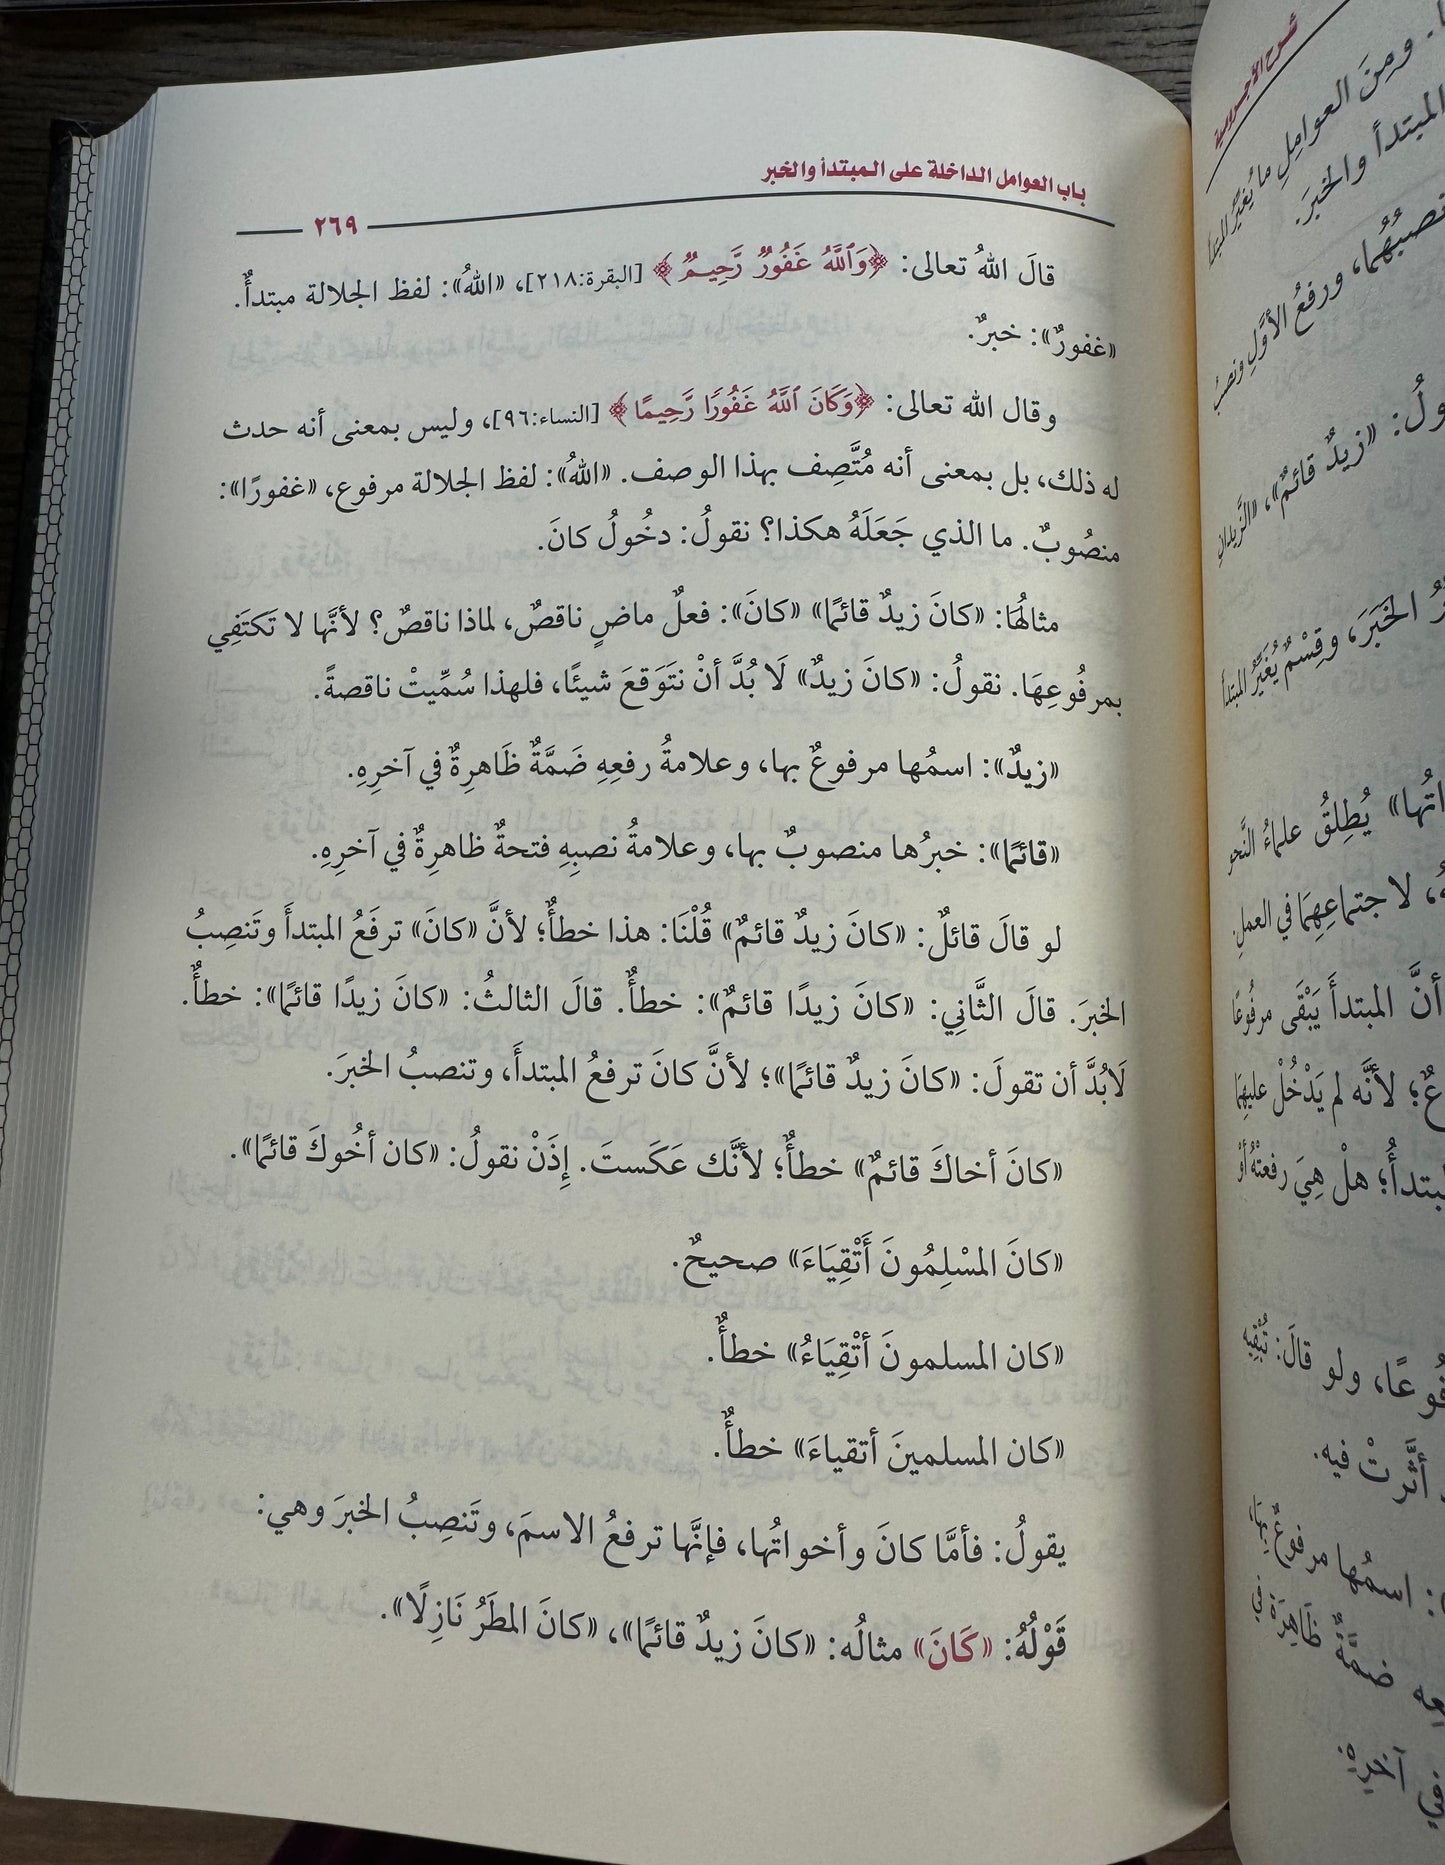 باب العوامل الداخلة على المبتدأ والخبر
٢٦٩
قالَ اللهُ تعالى: ﴿وَٱللَّهُ غَفُورٌ رَّحِيمٌ﴾ [البقرة:٢١٨]، «اللهُ»: لفظ الجلالة مبتدأٌ.
«غفورٌ»: خبرٌ.
وقال الله تعالى: ﴿وَكَانَ ٱللَّهُ غَفُورًا رَّحِيمًا﴾ [النساء:٩٦]، وليس بمعنى أنه حدث
له ذلك، بل بمعنى أنه مُتَّصِف بهذا الوصف. «اللهُ»: لفظ الجلالة مرفوع، «غفورًا»:
منصُوبٌ. ما الذي جَعَلَهُ هكذا؟ نقولُ: دخُولُ كانَ.
مثالُهَا: «كانَ زيدٌ قائمًا» «كانَ»: فعلٌ ماضٍ ناقصٌ، لماذا ناقصٌ؟ لأنَّها لا تَكتَفِي
بمرفُوعِهَا. نقولُ: «كانَ زيدٌ» لَا بُدَّ أنْ نتَوَقعَ شيئًا، فلهذا سُمِّيتْ ناقصةً.
«زيدٌ»: اسمُها مرفوعٌ بها، وعلامةُ رفعِهِ ضَمَّةٌ ظَاهرِةٌ في آخرِهِ.
«قائمًا»: خبرُها منصوبٌ بها، وعلامةُ نصبِهِ فتحةٌ ظاهرِةٌ في آخرِهِ.
لو قالَ قائلٌ: «كانَ زيدٌ قائمٌ» قُلْنَا: هذا خطأٌ؛ لأنَّ «كانَ» ترفَعُ المبتدأَ وتَنصِبُ
الخبرَ. قالَ الثَّانِي: «كانَ زيدًا قائمٌ»: خطأٌ. قالَ الثالثُ: «كانَ زيدًا قائمًا»: خطأٌ.
لَابُدَّ أن تقولَ: «كانَ زيدٌ قائمًا»؛ لأنَّ كانَ ترفعُ المبتدأَ، وتنصبُ الخبرَ.
«كانَ أخاكَ قائمٌ» خطأٌ؛ لأنَّك عَكَستَ. إِذَنْ نقولُ: «كان أخُوكَ قائمًا».
«كانَ المسْلِمُونَ أَتْقِيَاءَ» صحيحٌ.
«كان المسلمونَ أتْقِيَاءُ» خطأٌ.
«كان المسلمينَ أتقياءَ» خطأٌ.
يقولُ: فأمَّا كانَ وأخواتُها، فإنَّها ترفعُ الاسمَ، وتَنصِبُ الخبرَ وهي:
قَوْلُهُ: «كَانَ» مثالُه: «كانَ زيدٌ قائمًا»، «كانَ المطَرُ نَازِلًا».
شرح الآجرومية
ومِنَ العوامِلِ ما يُغيِّرُ المبتدأ
المبتدأ والخبرَ.
ورفعُ الأوَّلِ ونصبُ
«زيدٌ قائمٌ»، «الزَّيدانِ
الخَبَرَ، وقِسْمٌ يُغَيِّرُ المبتدأ
يُطِلِقُ علماءُ النَّحو
لاجتماعِهِمَا في العملِ.
أنَّ المبتدأَ يَبْقَى مرفُوعًا
لأنَّه لم يَدْخُلْ عليهِمَا
هلْ هِيَ رفعتْهُ أوْ
ولو قالَ: تُبْقِيه
أثَّرتْ فيه.
اسمُها مرفوعٌ بِهَا،
ضمَّةٌ ظَاهِرَةٌ في
آخرِهِ